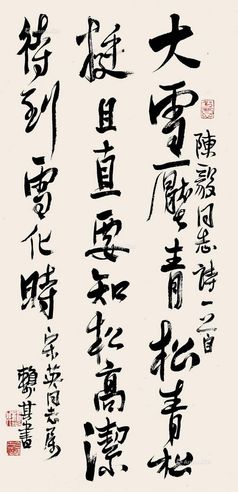 大雪壓青松青松
挺且直要知松高潔
待到雪化時
陳毅同志詩一首
宋英同志屬
賴其書